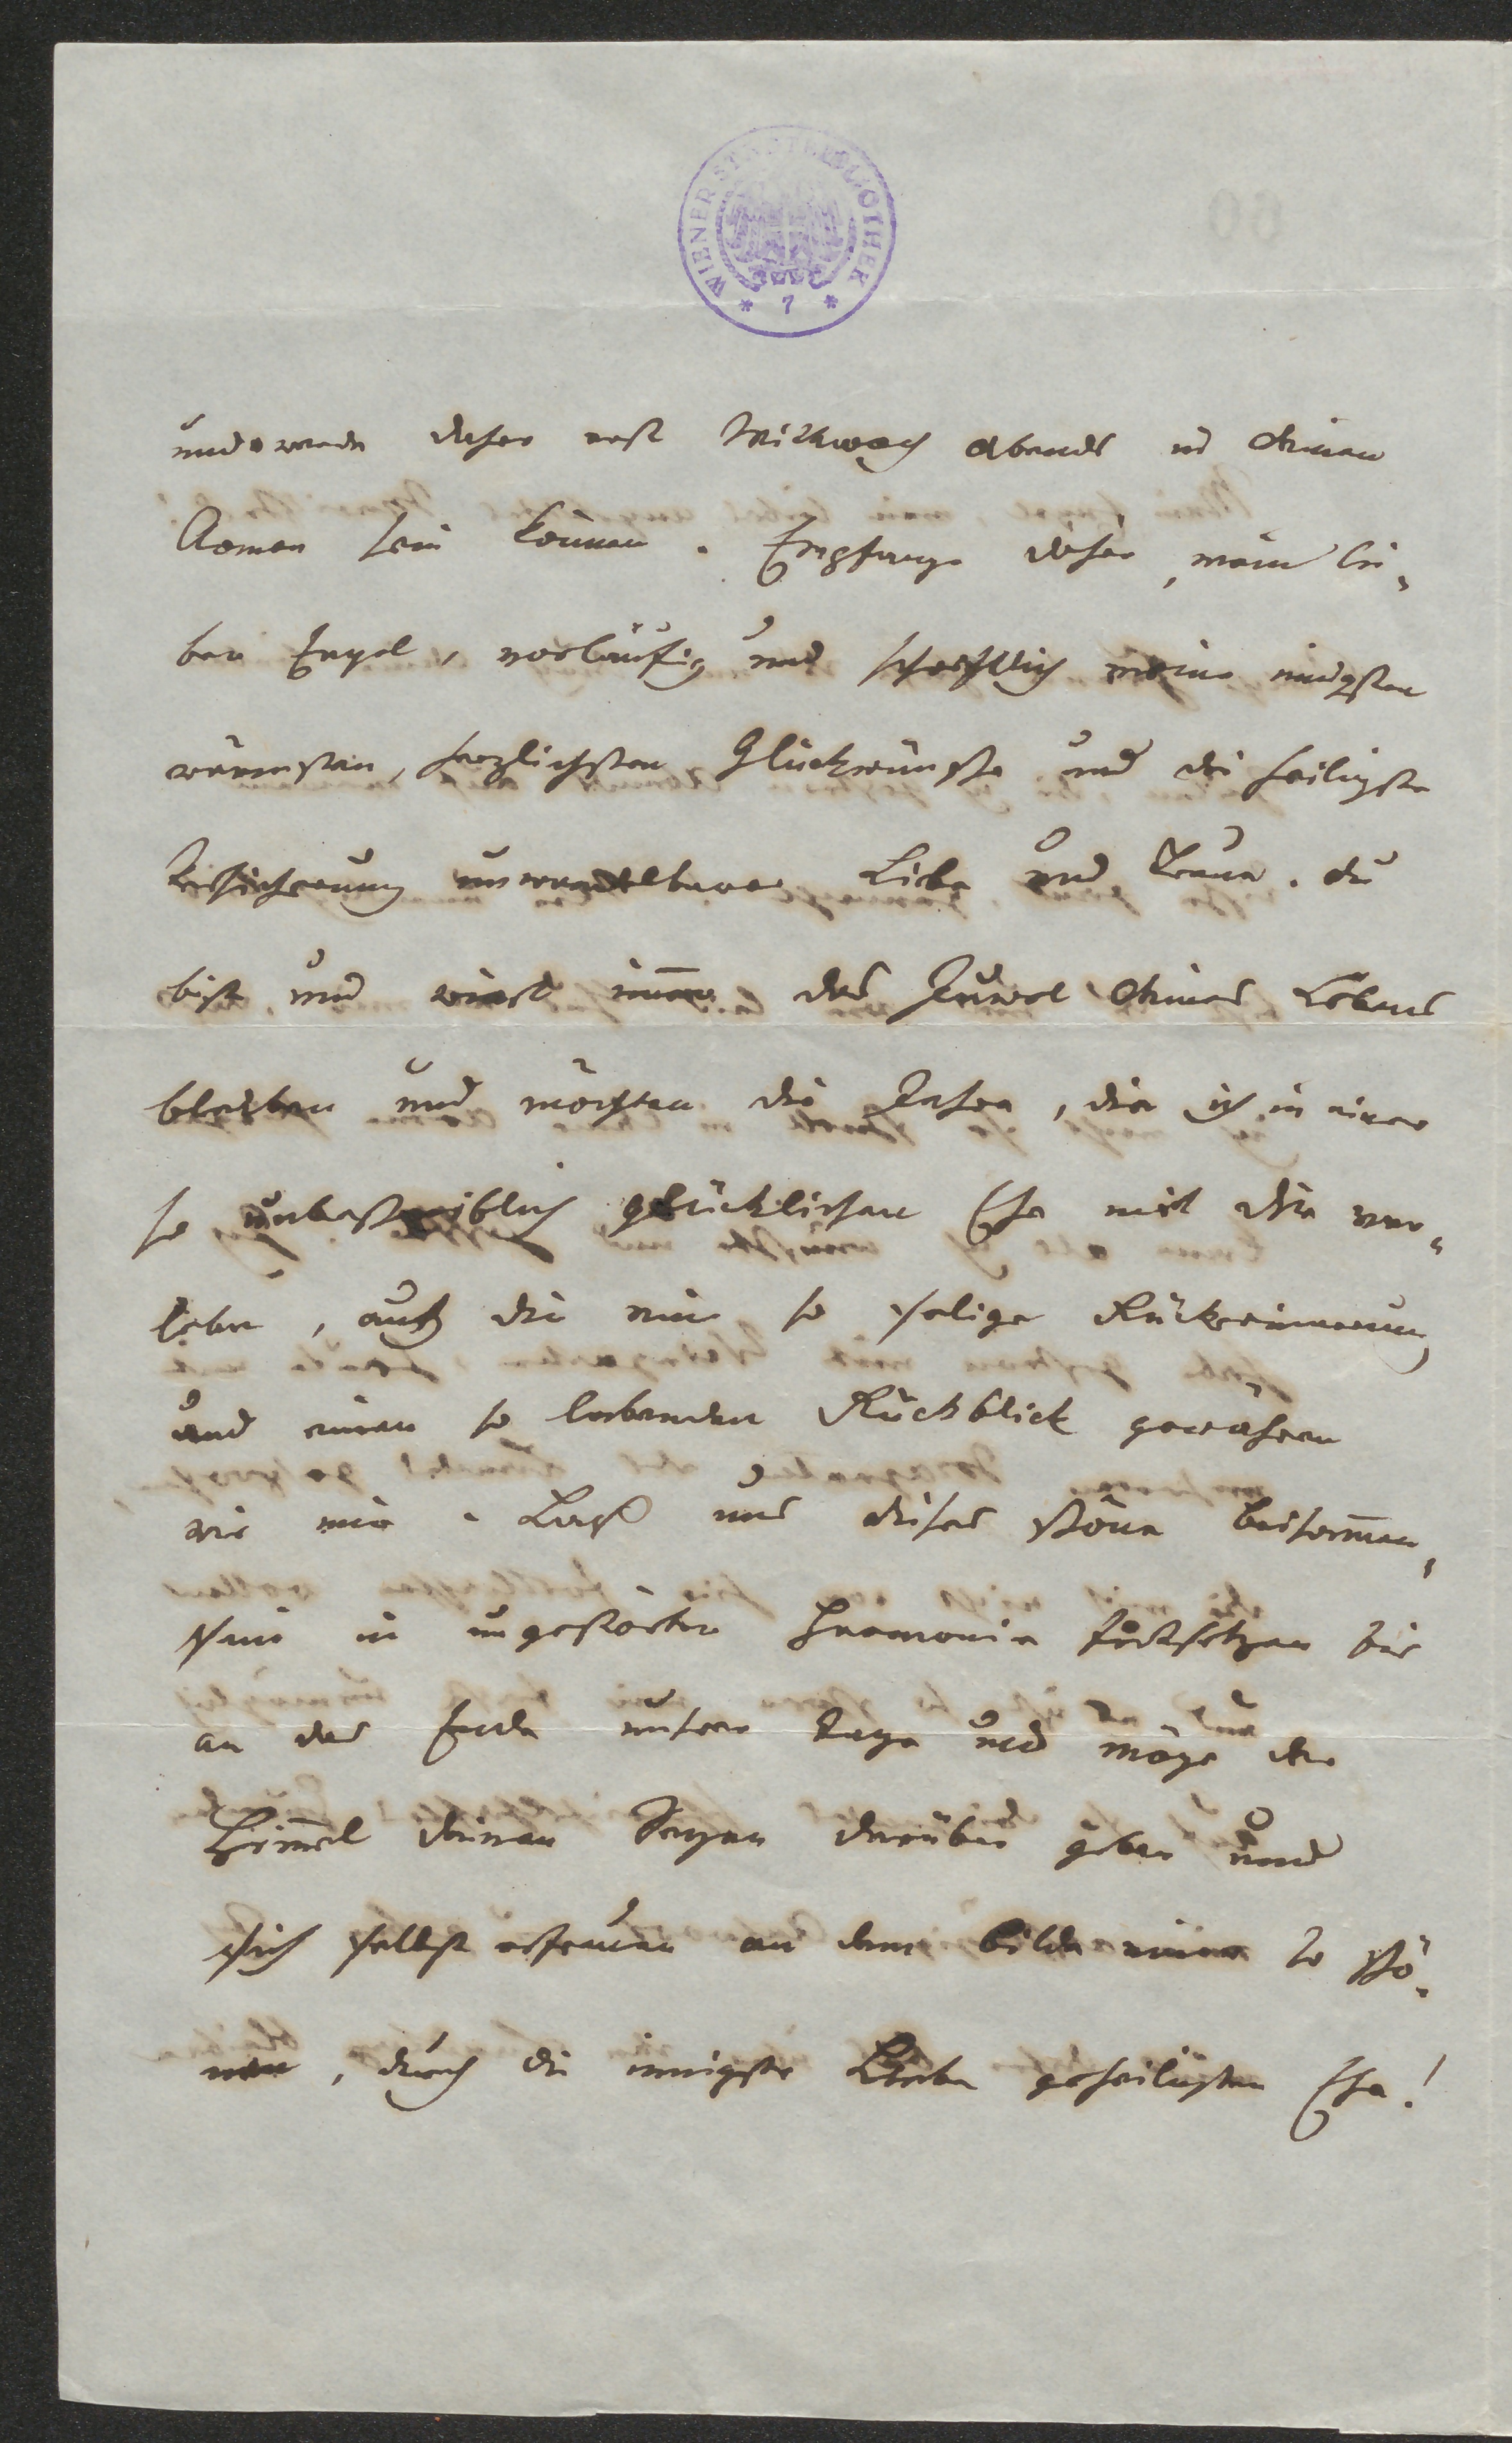 WIENER STADTBIBLIOTHEK
* 7 *
und werde daher erst Mittwoch abends in deinen
Armen sein können. Empfange daher, mein lie-
ber Engel, vorläufig und schriftlich meine innigsten
wärmsten, herzlichsten Glückwünsche und die heiligste
Versicherung unwandelbarer Liebe und Treue. Du
bist und wirst im̅er das Juwel meines Lebens
bleiben und möchten die Jahre, die ich in einer
so unbeschreiblich glücklichen Ehe mit dir ver-
lebte, auch dir eine so selige Rückerinnerung
und einen so lohnenden Rückblick gewähren
wie mir. Laß uns dieses schöne Beisam̅en-
sein in ungestörter Harmonie fortsetzen bis
an das Ende unserer Tage und möge der
Him̅el seinen Segen darüber geben und
sich selbst erfreuen an dem Bilde einer so schö-
nen, durch die innigste Liebe geheiligten Ehe!